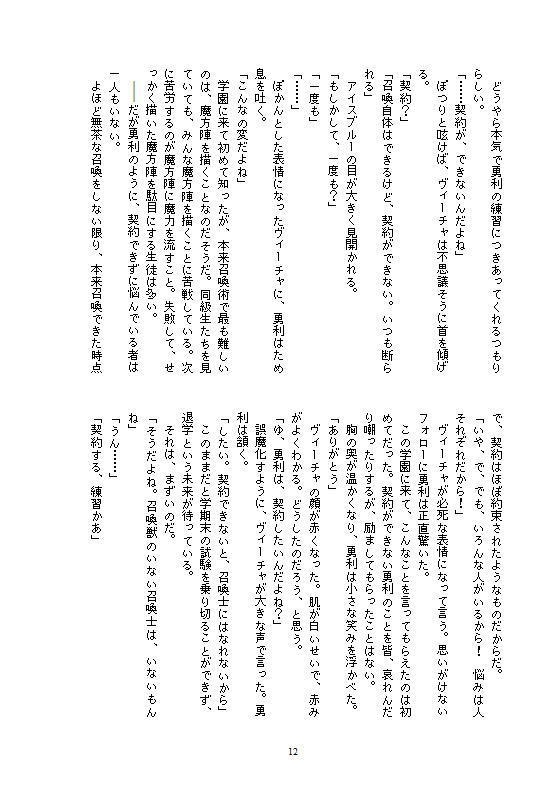 どうやら本気で勇利の練習につきあってくれるつもり
らしい。
「……契約が、できないんだよね」
　ぽつりと呟けば、ヴィーチャは不思議そうに首を傾げ
る。
「契約？」
「召喚自体はできるけど、契約ができない。いつも断ら
れる」
　アイスブルーの目が大きく見開かれる。
「もしかして、一度も？」
「一度も」
「……」
　ぽかんとした表情になったヴィーチャに、勇利はため
息を吐く。
「こんなの変だよね」
　学園に来て初めて知ったが、本来召喚術で最も難しい
のは、魔方陣を描くことなのだそうだ。同級生たちを見
ていても、みんな魔方陣を描くことに苦戦している。次
に苦労するのが魔方陣に魔力を流すこと。失敗して、せ
っかく描いた魔方陣を駄目にする生徒は多い。
　――だが勇利のように、契約できずに悩んでいる者は
一人もいない。
　よほど無茶な召喚をしない限り、本来召喚できた時点
で、契約はほぼ約束されたようなものだからだ。
「いや、で、でも、いろんな人がいるから！　悩みは人
それぞれだから！」
　ヴィーチャが必死な表情になって言う。思いがけない
フォローに勇利は正直驚いた。
　この学園に来て、こんなことを言ってもらえたのは初
めてだった。契約ができない勇利のことを皆、哀れんだ
り嘲ったりするが、励ましてもらったことはない。
　胸の奥が温かくなり、勇利は小さな笑みを浮かべた。
「ありがとう」
　ヴィーチャの顔が赤くなった。肌が白いせいで、赤み
がよくわかる。どうしたのだろう、と思う。
「ゆ、勇利は、契約したいんだよね？」
　誤魔化すように、ヴィーチャが大きな声で言った。勇
利は頷く。
「したい。契約できないと、召喚士にはなれないから」
　このままだと学期末の試験を乗り切ることができず、
退学という未来が待っている。
　それは、まずいのだ。
「そうだよね。召喚獣のいない召喚士は、いないもん
ね」
「うん……」
「契約する、練習かあ」
12